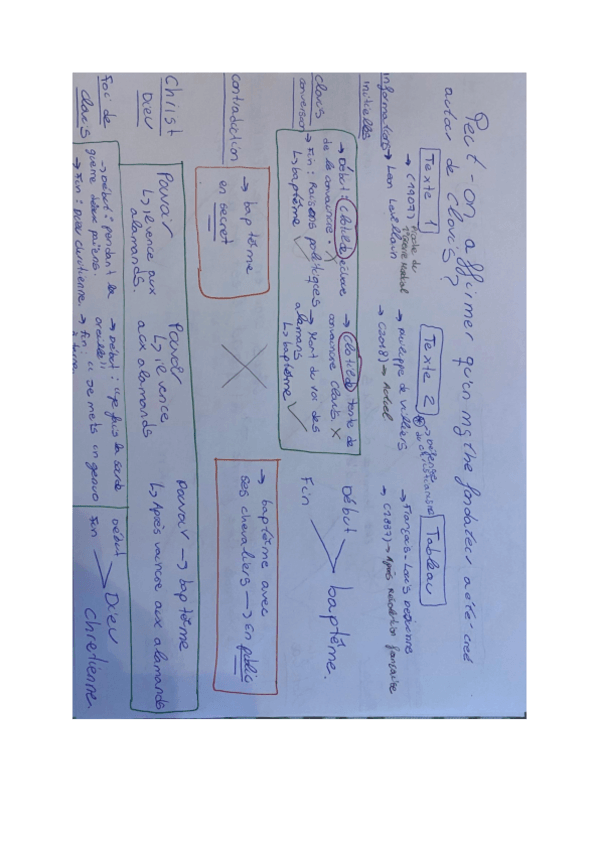 Peut-on affirmer qu'un mythe fondateur a été créé
autour de Clovis?
Texte 1
Texte 2
Tableau
→ (1907)
→ Léon
→ Philippe de Villiers
→ (2018) → Actuel
→ défense
→ François-Louis
→ (1837) → Après Révolution française
Informations
initielles
Clovis
conversion
→ Début: Clotilde
de le convaincre. X
→ Fin: Raisons politiques
↳ baptême ✓
→ Clotilde tente de
convaincre Clovis. X
→ Mort du roi des
alamans
↳ baptême ✓
Début
Fin
baptême.
contradiction
→ baptême
en secret
X
→ baptême avec
ses chevaliers → En public
Christ
Dieu
Pouvoir
↳ il vence aux
alamands.
Pouvoir
↳ il vence
aux alamands
Pouvoir → baptême
↳ Après vaincre aux alamands
Foi de
Clovis
→ Début: pendant la
guerre dieux païens.
→ Fin: Dieu chrétienne.
→ Début:
oreille
→ Fin: il se mets en genou
à terre
Début
Fin
Dieu
Chrétienne.